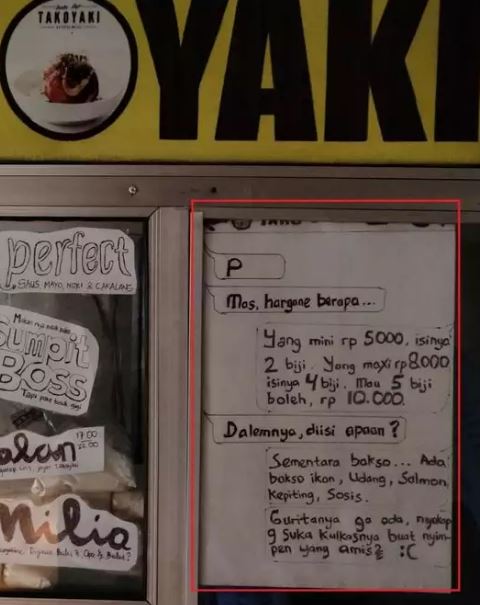 TAKOYAKI
OYAKI
perfect
SAUS, MAYO, NORI & CAKALANG
Sumpit
BOSS
17.00
22.00
alan
milia
P
Mas, hargane berapa...
Yang mini rp 5000, isinya
2 biji. Yang maxi rp 8.000
isinya 4 biji. Mau 5 biji
boleh, rp 10.000.
Dalemnya, diisi apaan?
Sementara bakso... Ada
bakso ikan, Udang, Salmon,
Kepiting, Sosis.
Guritanya ga ada, nyokap
g suka kulkasnya buat nyim-
pen yang amis2 :C